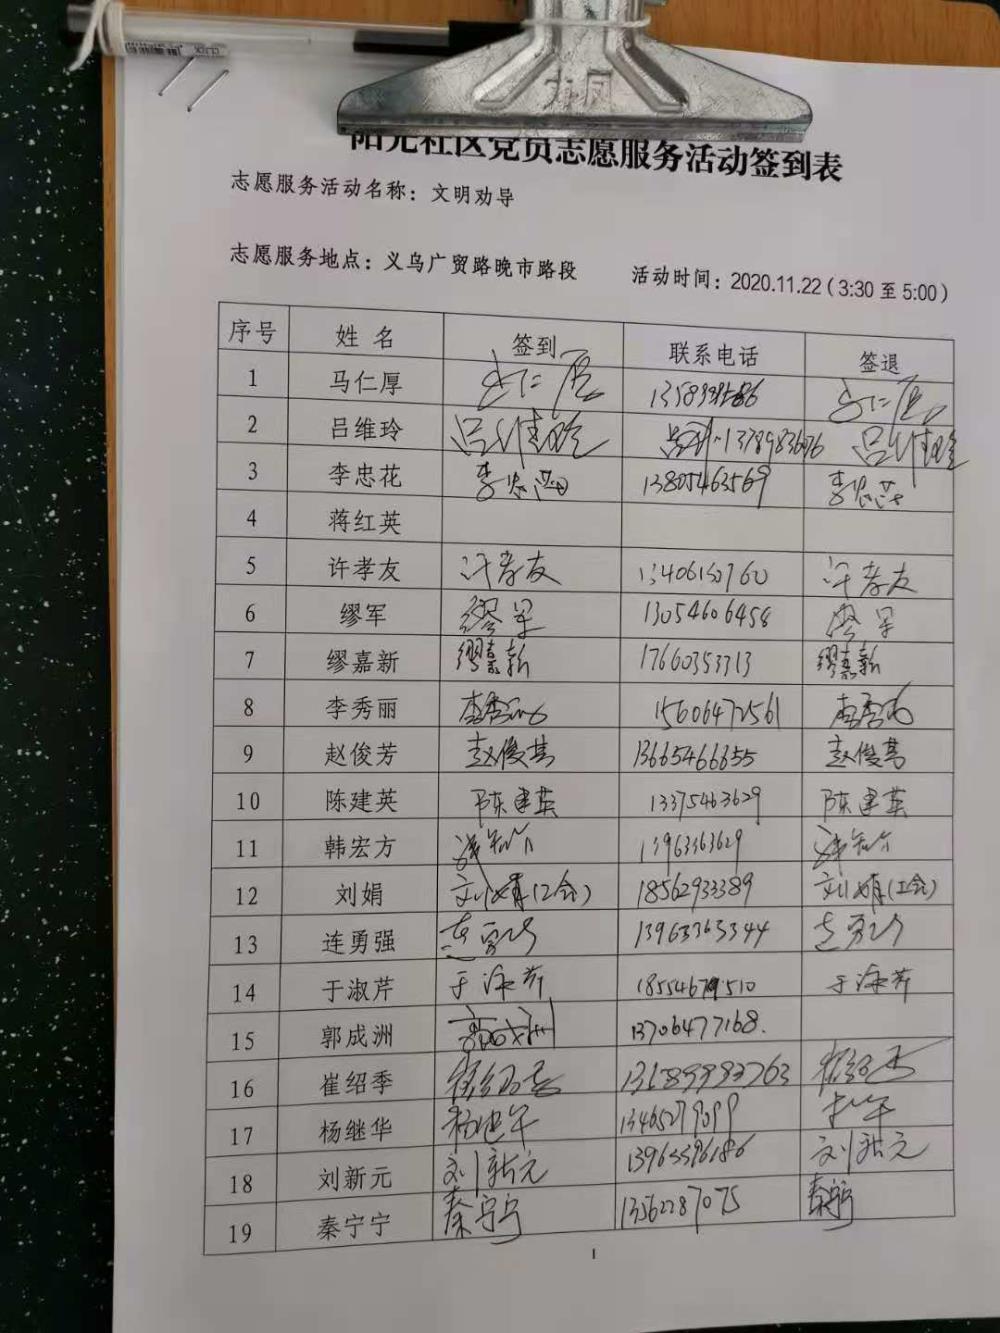 阳光社区党员志愿服务活动签到表
志愿服务活动名称：文明劝导
志愿服务地点：义乌广贸路晚市路段 活动时间：2020.11.22（3:30 至 5:00）
序号 姓名 签到 联系电话 签退
1 马仁厚 马仁厚 马仁厚
2 吕维玲 吕维玲 1378983676 吕维玲
3 李忠花 李忠花 13805463569 李忠花
4 蒋红英
5 许孝友 许孝友 13406150760 许孝友
6 缪军 缪军 13054606458 缪军
7 缪嘉新 缪嘉新 17660353713 缪嘉新
8 李秀丽 李秀丽 15606472561 李秀丽
9 赵俊芳 赵俊芳 13665466655 赵俊芳
10 陈建英 陈建英 13375463629 陈建英
11 韩宏方 13963363629
12 刘娟 刘娟(工会) 18562933389 刘娟(工会)
13 连勇强 连勇强 13963363344 连勇强
14 于淑芹 于淑芹 于淑芹
15 郭成洲 郭成洲 13706477168.
16 崔绍季 崔绍季 崔绍季
17 杨继华 杨继华 13465279099
18 刘新元 刘新元 刘新元
19 秦宁宁 秦宁宁 13562287075 秦宁
1